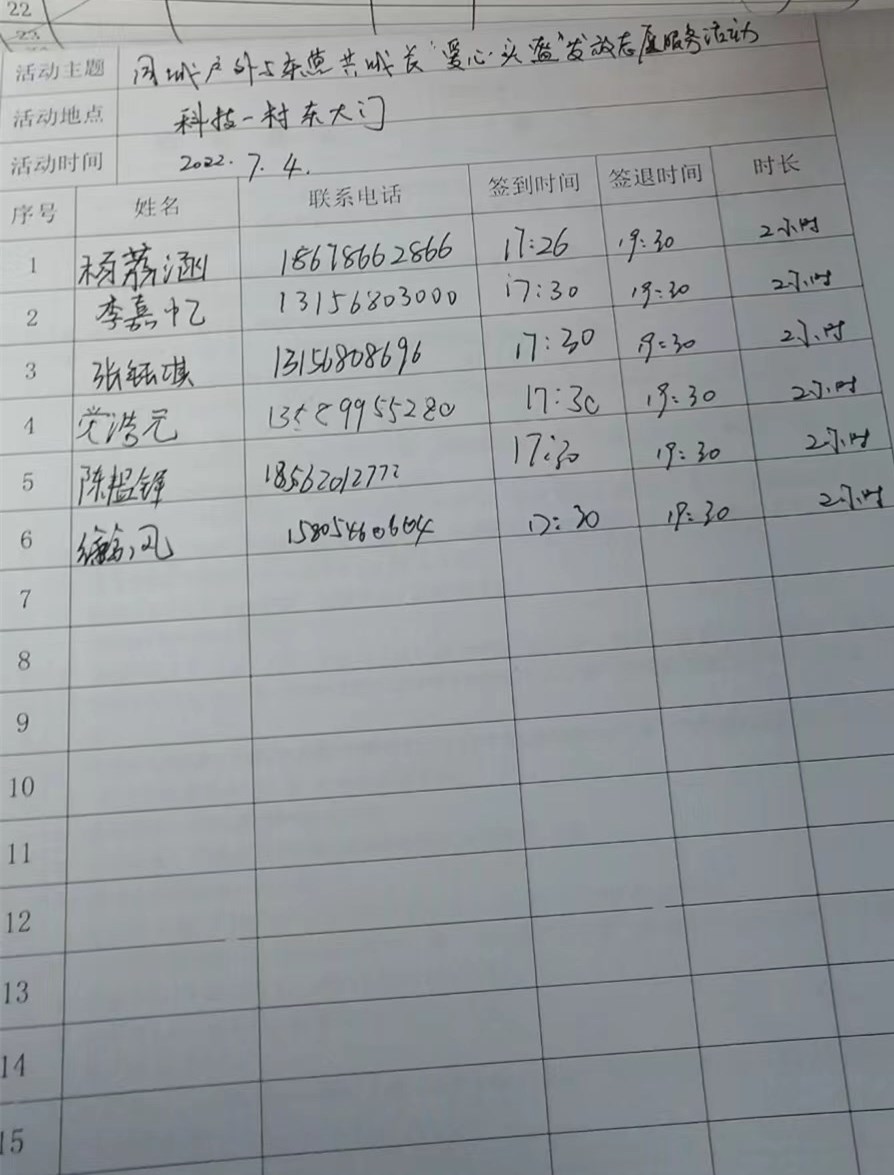 22
23
活动主题 同城户外与东营共成长“爱心头盔”发放志愿服务活动
活动地点 科技一村东大门
活动时间 2022.7.4.
序号 姓名 联系电话 签到时间 签退时间 时长
1 杨荔涵 18678662866 17:26 19:30 2小时
2 李嘉忆 13156803000 17:30 19:30 2小时
3 张钰琪 13156808696 17:30 19:30 2小时
4 浩元 13589955280 17:30 19:30 2小时
5 陈韫铎 18562012772 17:30 19:30 2小时
6 15805460604 17:30 19:30 2小时
7
8
9
10
11
12
13
14
15